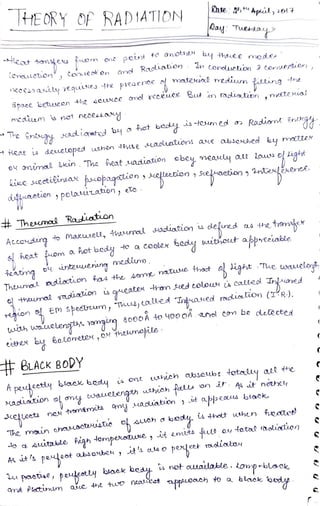 THEORY OF RADIATION
Date: April, 2017
Day: Tuesday
Heat transfers from one point to another by three modes
conduction, convection and Radiation. In conduction & convection,
necessarily requires the presence of material medium filling the
space between the source and receiver But in radiation, material
medium is not necessary
The Energy radiated by a hot body is termed as Radiant Energy.
Heat is developed when these radiations are absorbed by matter
or animal skin. The heat radiation obey nearly all laws of light
like rectilinear propagation, reflection, refraction, Interference,
diffraction, polarization, etc.
# Thermal Radiation
According to Maxwell, thermal radiation is defined as the transfer
of heat from a hot body to a cooler body without appreciable
heating of intervening medium.
Thermal radiation has the same nature that of light. The wavelength
of thermal radiation is greater than red colour is called Infrared
region of EM Spectrum, Thus, called Infrared radiation (I.R).
with wavelengths ranging 8000Å to 4000Å and can be detected
either by Bolometer, or thermopile.
# BLACK BODY
A perfectly black body is one which absorbs totally all the
radiation of any wavelength which falls on it. As it neither
reflects nor transmits any radiation, it appears black.
The main characteristic of such a body is that when heated
to a suitable high temperature, it emits full or total radiation
As it's perfect absorber, it's also perfect radiator
In practise, perfectly black body is not available. Lamp-black
and Platinum are the two nearest approach to a black body.